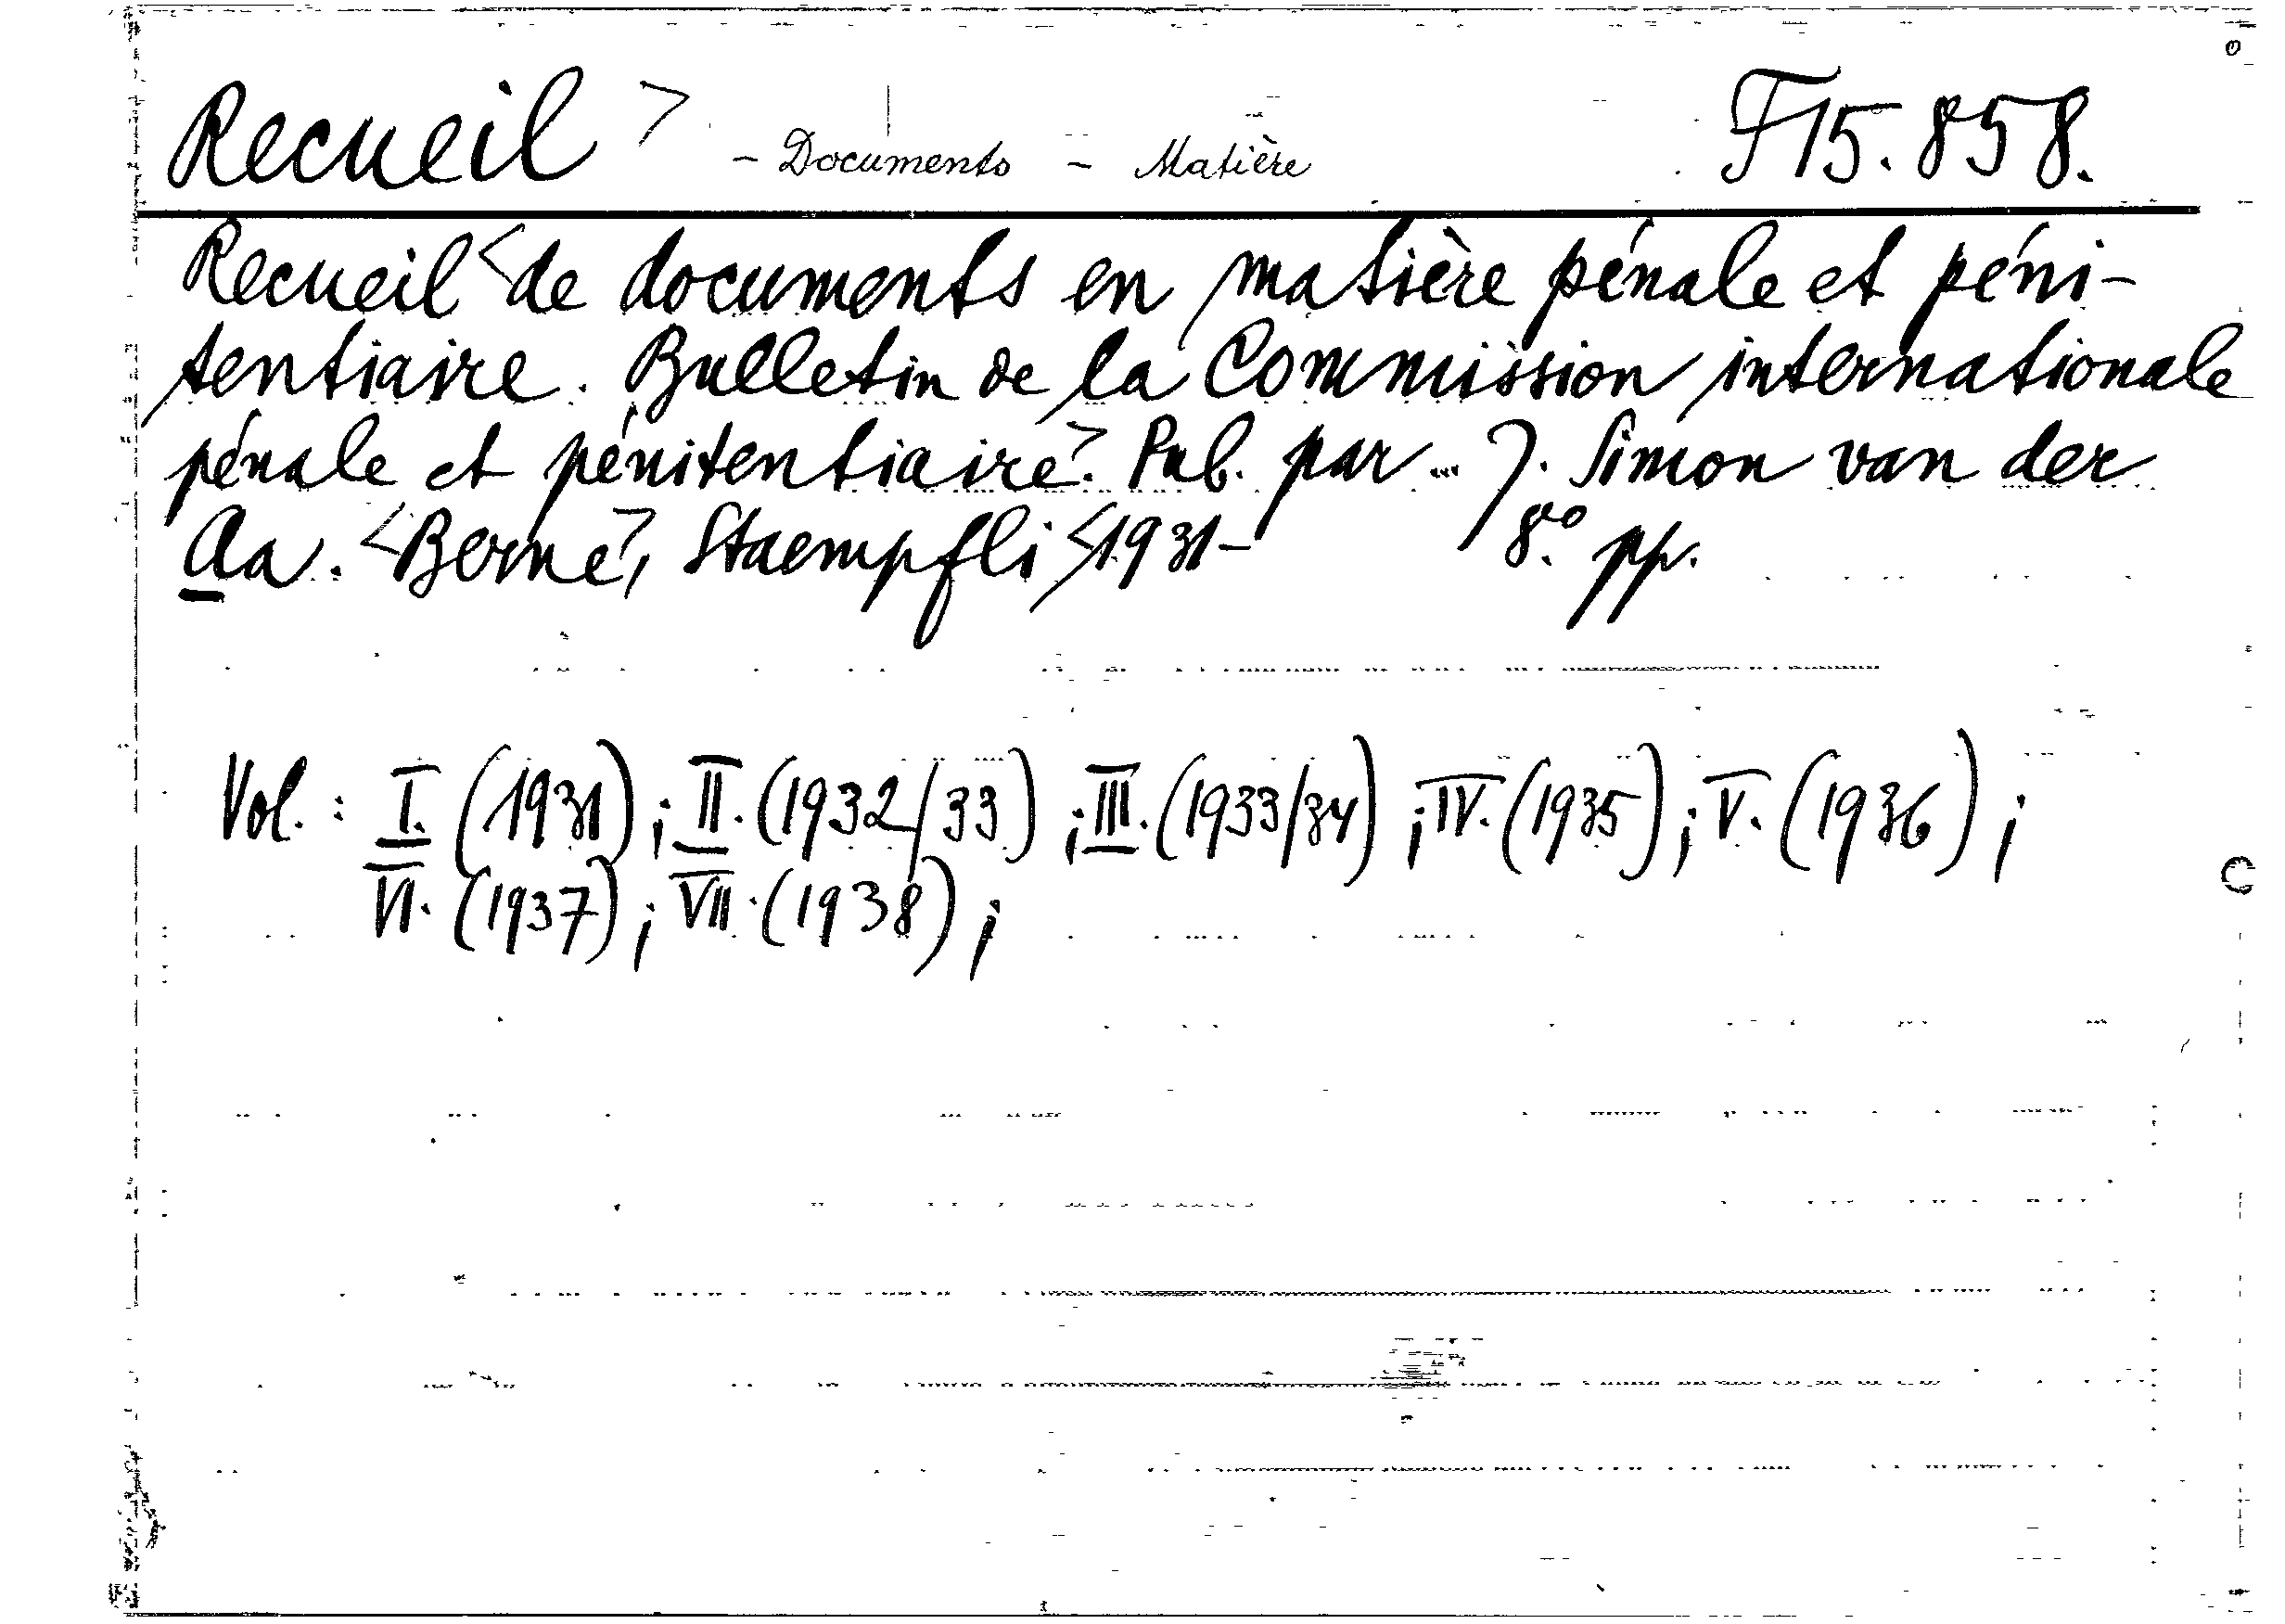 Recueil > - Documents - Matière F15.858.
Recueil < de documents en matière pénale et péni-
tentiaire. Bulletin de la Commission internationale
pénale et pénitentiaire>. Pub. par ... J. Simon van der
Aa. <Berne>, Staempfli <1931- 8.° pp.
Vol.: I. (1931); II. (1932/33); III. (1933/34); IV. (1935); V. (1936);
VI. (1937); VII. (1938);